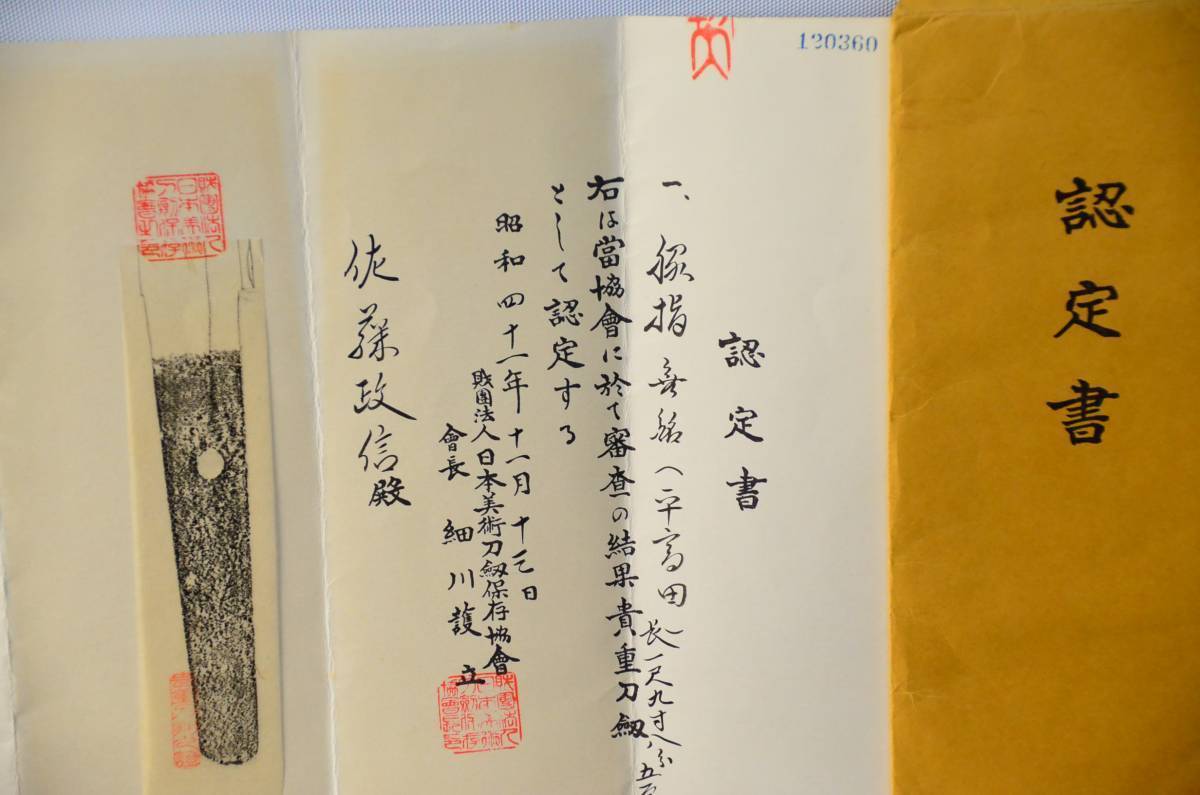 認定書
120360
認定書
一、脇指 無銘(平高田 長一尺九寸八分五
右は當協會に於て審査の結果貴重刀劔
として認定する
昭和四十一年十一月十三日
財團法人日本美術刀劔保存協會
會長 細川護立
佐藤政信殿